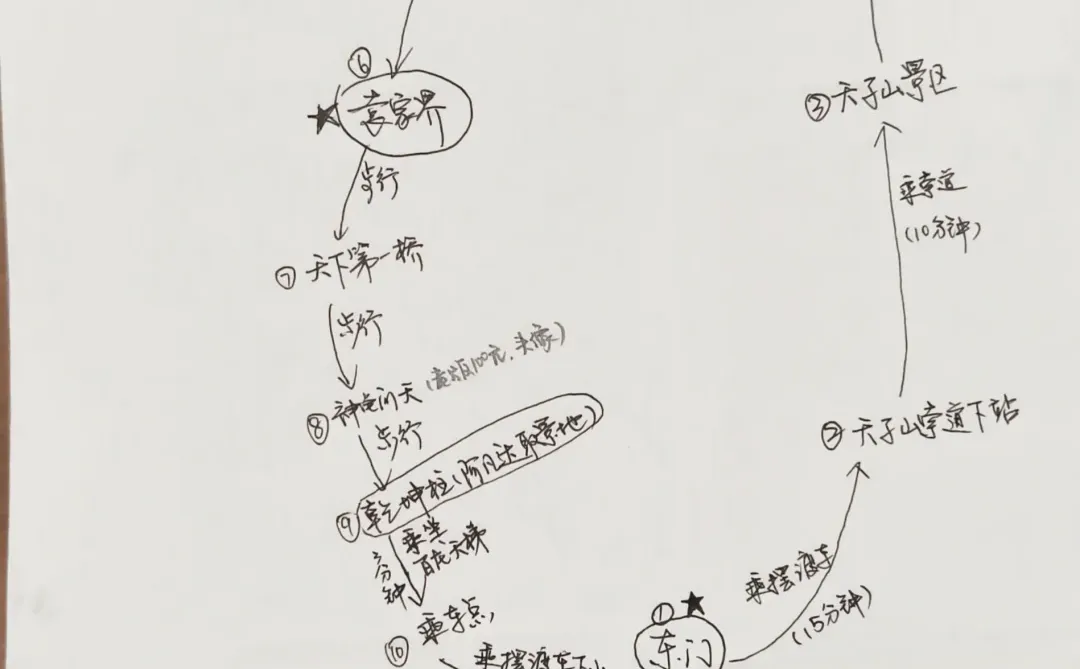 ⑥
★ 袁家界
步行
⑦ 天下第一桥
步行
⑧ 神龟问天
步行
⑨ 乾坤柱(阿凡达取景地)
乘坐
百龙天梯
分钟
⑩ 乘车点
乘摆渡车下山
① ★
东门
乘摆渡车
(15分钟)
② 天子山索道下站
乘索道
(10分钟)
③ 天子山景区